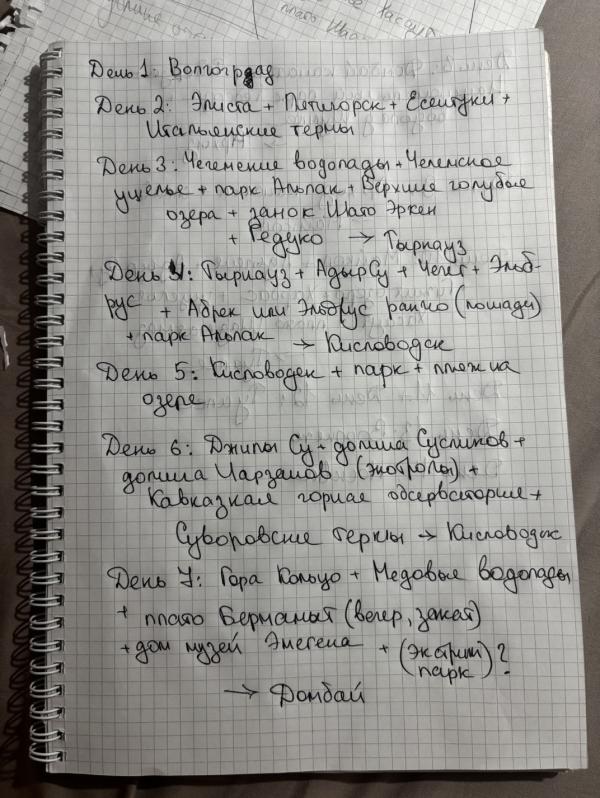 День 1: Волгоград
День 2: Элиста + Пятигорск + Ессентуки +
Итальянские термы
День 3: Чегемские водопады + Чегемское
ущелье + парк Альпак + Верхние голубые
озера + замок Шато Эркен
+ Редуко → Тырнауз
День 4: Тырнауз + АдырСу + Чегет + Эльб-
рус + Абрек или Эльбрус ранчо (лошади)
+ парк Альпак → Кисловодск
День 5: Кисловодск + парк + пляж на
озере
День 6: Джилы Су + долина Сусликов +
долина Нарзанов (экотропы) +
Кавказкая горная обсерватория +
Суворовские термы → Кисловодск
День 7: Гора Кольцо + Медовые водопады
+ плато Бермамыт (вечер, закат)
+ дом музей Эмегена + (экстрим
парк)?
→ Домбай